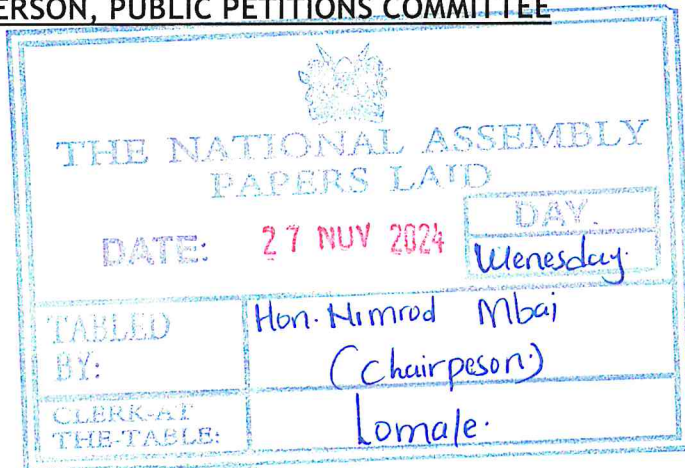 ERSON, PUBLIC PETITIONS COMMITTEE
THE NATIONAL ASSEMBLY
PAPERS LAID
DATE: 27 NOV 2024 DAY.
Wenesday.
TABLED BY: Hon. Nimrod Mbai
(Chairpeson)
CLERK-AT THE-TABLE: Lomale.